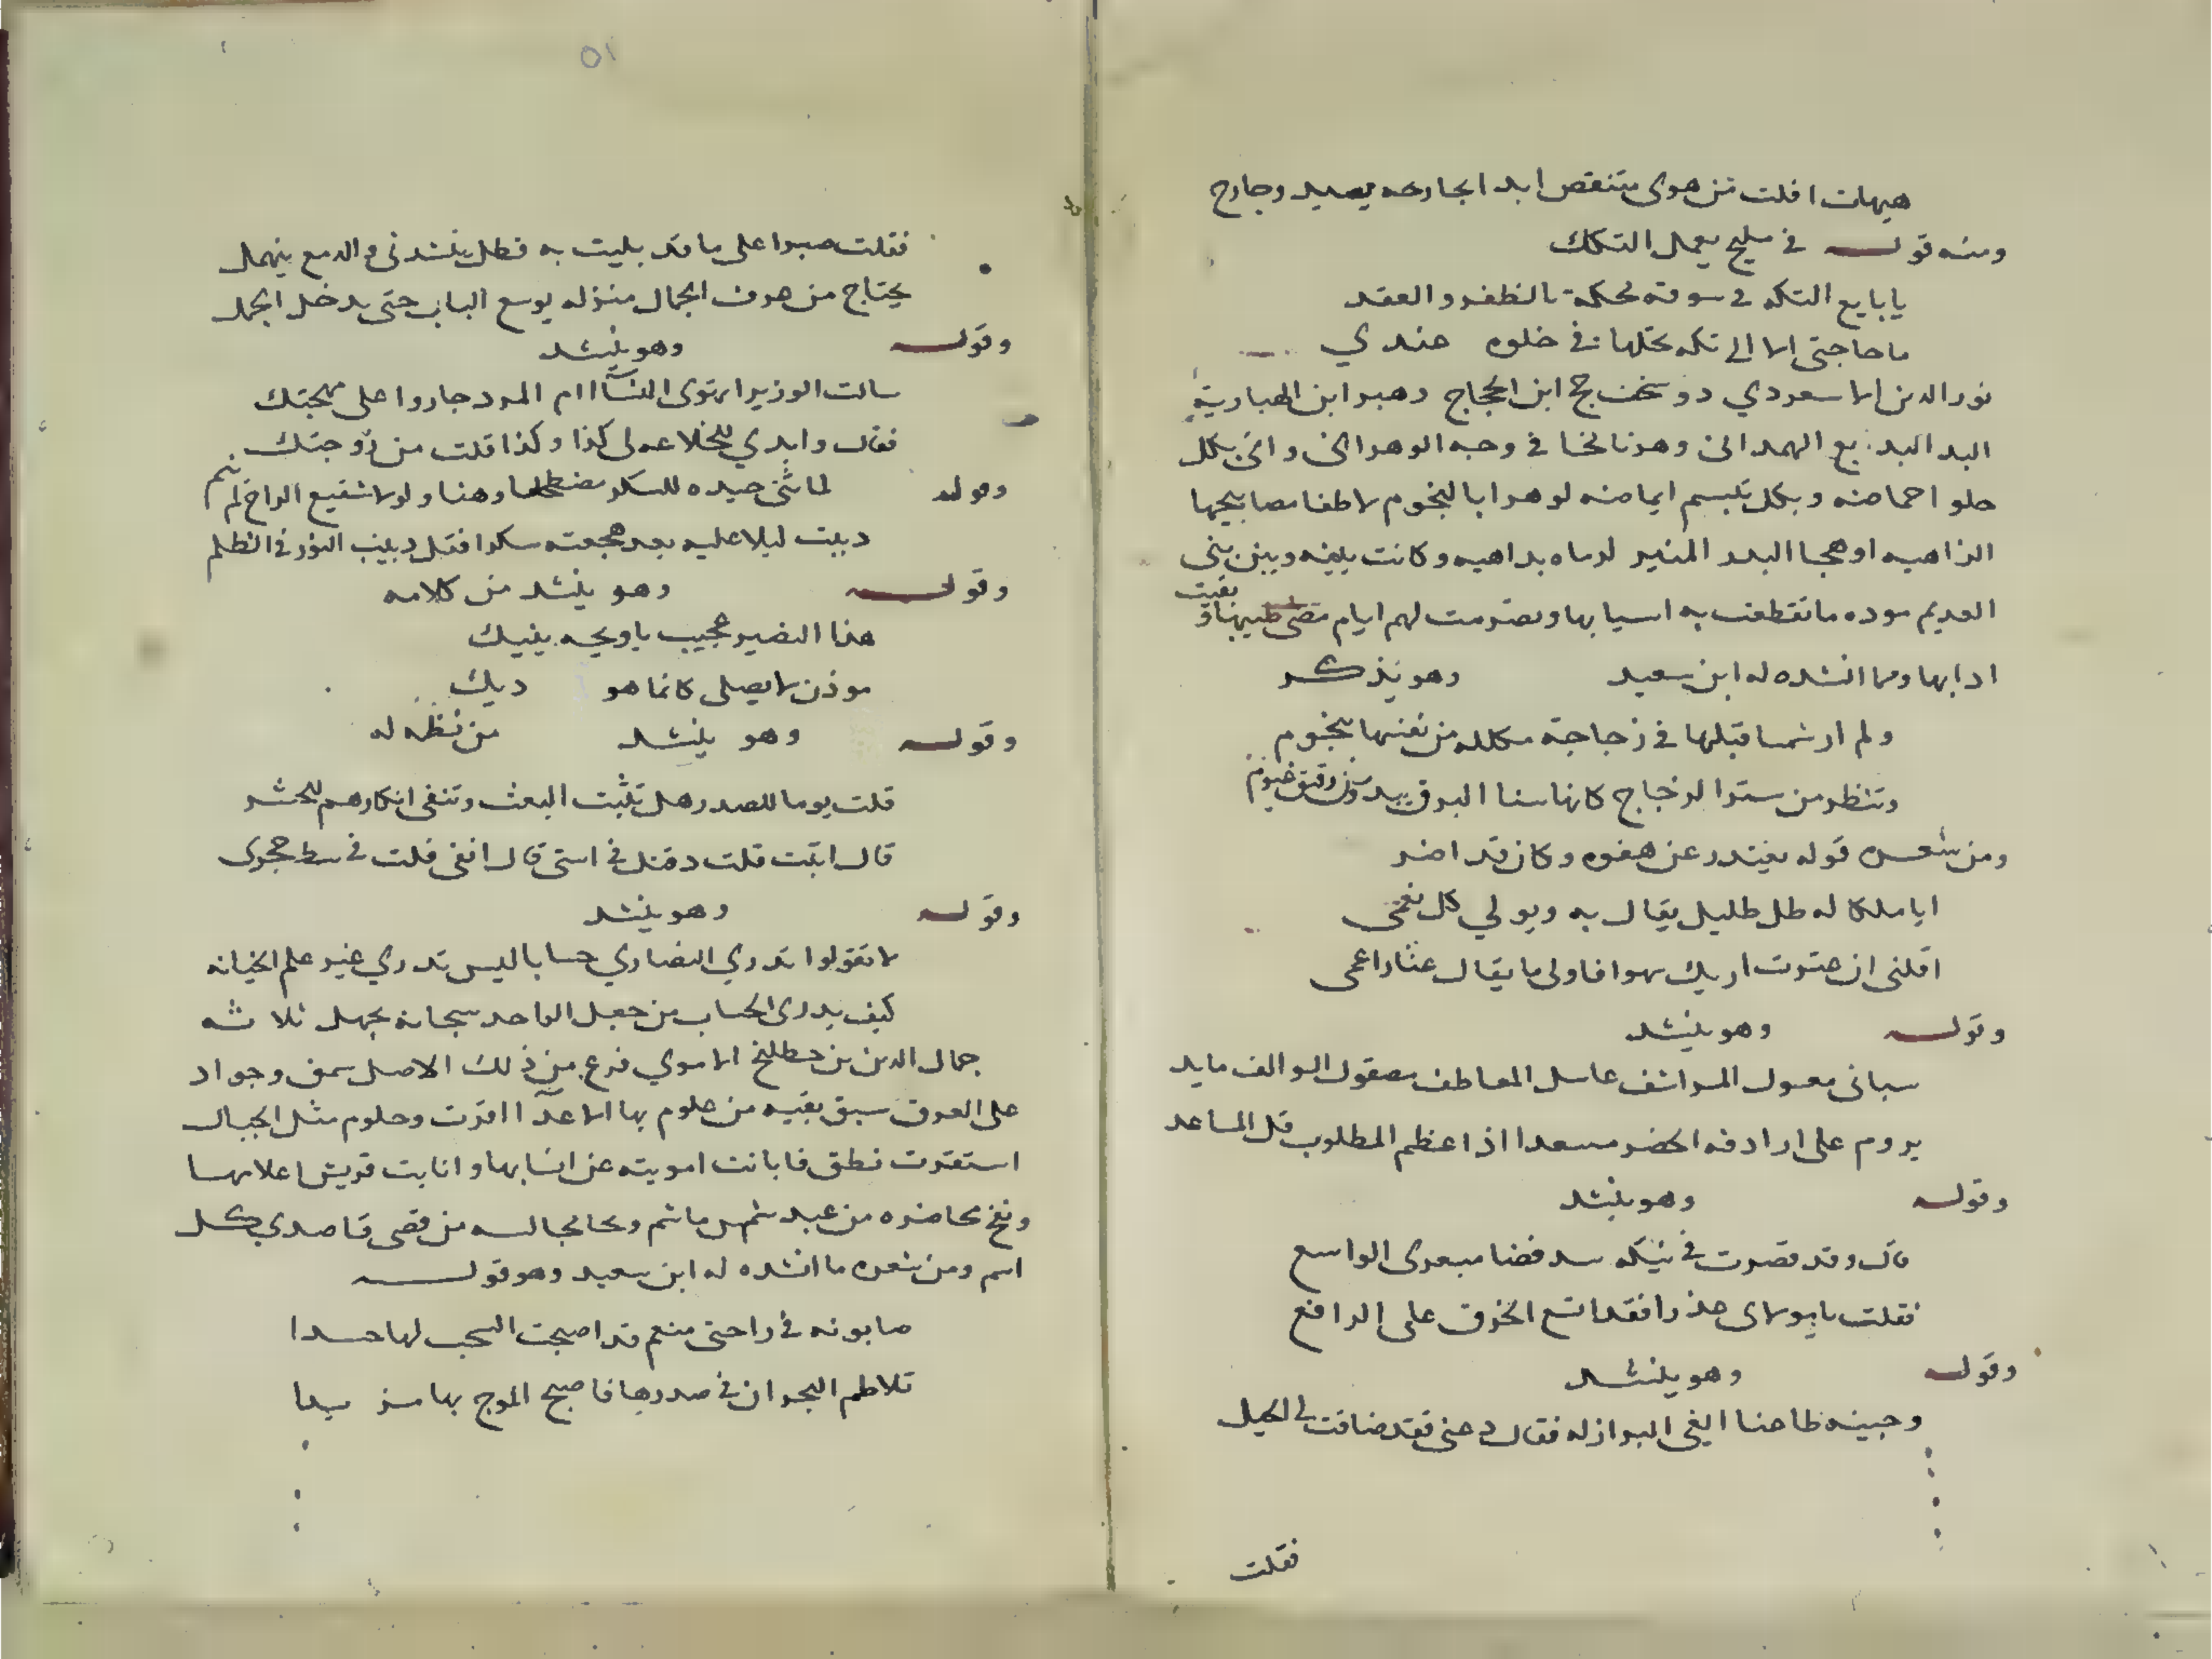 هيهات افلت من هوى متنقص ابد الجارحه يصيد وجارح
ومنه قوله في مليح يعمل التكك
يا بايع التكه في سوقه محكمة بالظفر والعقد
ما حاجتى الا الى تكه تحلها في خلوه عندي
نور الدين الاسعردي ذو سخف حج ابن الحجاج وهبر ابن الهبارية
البد البديع الهمدانى وهزنا لخا في وجه الوهرانى واتى بكل
حلو احماضه وبكل تبسم ايماضه لو هوا بالنجوم لاطفا مصابيحها
الزاهيه او هجا البدر المنير لرماه بداهيه وكانت بينه وبين بنى
العديم موده ما تقطعت به اسبابها وتصرمت لهم ايام مضى طيبها وبقيت
ادابها ومما انشده له ابن سعيد وهو يذكر
ولم ار شمسا قبلها في زجاجة مكلله من نفسها بنجوم
وتنظر من ستر الزجاج كانها سنا البرق يبدو من رقيق غيوم
ومن شعره قوله يعتذر عن هفوه وكان قد اضر
ايا ملكا له ظل ظليل يقال به ويولي كل نعمى
اقلنى ان عثرت اريك سهوا فاولى ما يقال عثار اعمى
وقوله وهو ينشد
سبانى معسول المراشف عاسل المعاطف مصقول السوالف مايد
يروم على اردافه الخضر مسعدا اذا عظم المطلوب قل المساعد
وقوله وهو ينشد
قال وقد قصرت في نيكه سد فضا مبعرى الواسع
فقلت يا مولاى عذرا فقد اتسع الخرق على الراقع
وقوله وهو ينشد
وجبينه طاحنا ابغى البراز له فقال دعنى فقد ضاقت بى الحيل
فقلت
٥١
فقلت صبرا على ما قد بليت به فظل ينشدنى والدمع ينهمل
يحتاج من عرف الجمال منزله يوسع الباب حتى يدخل الجمل
وقوله وهو ينشد
سالت الوزير اتهوى النسا ام المرد جاروا على مهجتك
فقال وابدي للخلاعه لى كذا وكذا قلت من زوجتك
وقوله لما ثنى جيده للسكر مضطجعا وهنا ولولا شفيع الراح لم ينم
دببت ليلا عليه بعد هجعته سكرا فقل دبيب النور في الظلم
وقوله وهو ينشد من كلامه
هذا النضير عجيب يا ويحه ينيك
موذن لا يصلى كانما هو ديك
وقوله وهو ينشد من نظمه له
قلت يوما للصدر هل تثبت البعث وتنفى انكارهم للحشر
قال اثبت قلت دقنك في استى قال انفى قلت في وسط حجرى
وقوله وهو ينشد
لا تقولوا تدري النصاري حسابا ليس تدري غير علم الخيانه
كيف يدرى الحساب من جعل الواحد سبحانه بجهل ثلاثه
جمال الدين بن مطلخ الاموي فرع من ذلك الاصل سمق وجواد
على العرق سبق بقيه من علوم بها الاعدا اقرت وحلوم مثل الجبال
استقرت نطق فابانت امويته عن انسابها وانابت قريش اعلامها
ونخ محاضره من عبد شمس هاشم وبحا مجالسه من قصى قاصدي كل
اسم ومن شعره ما انشده له ابن سعيد وهو قوله
صابونه في راحتى منعم قد اصبحت السحب لها حسدا
تلاطم البحران في صدرها فاصبح الموج بها مزبدا